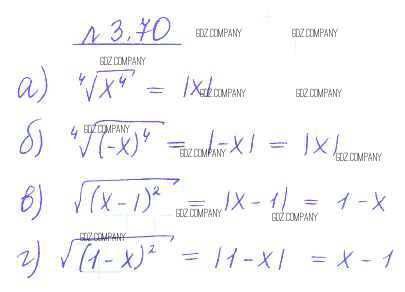 № 3.70
GDZ.COMPANY GDZ.COMPANY
GDZ.COMPANY
а) ⁴√x⁴ = |x|
GDZ.COMPANY GDZ.COMPANY
GDZ.COMPANY
б) ⁴√(-x)⁴ = |-x| = |x|
GDZ.COMPANY GDZ.COMPANY
в) √(x-1)² = |x-1| = 1-x
GDZ.COMPANY GDZ.COMPANY
GDZ.COMPANY
г) √(1-x)² = |1-x| = x-1